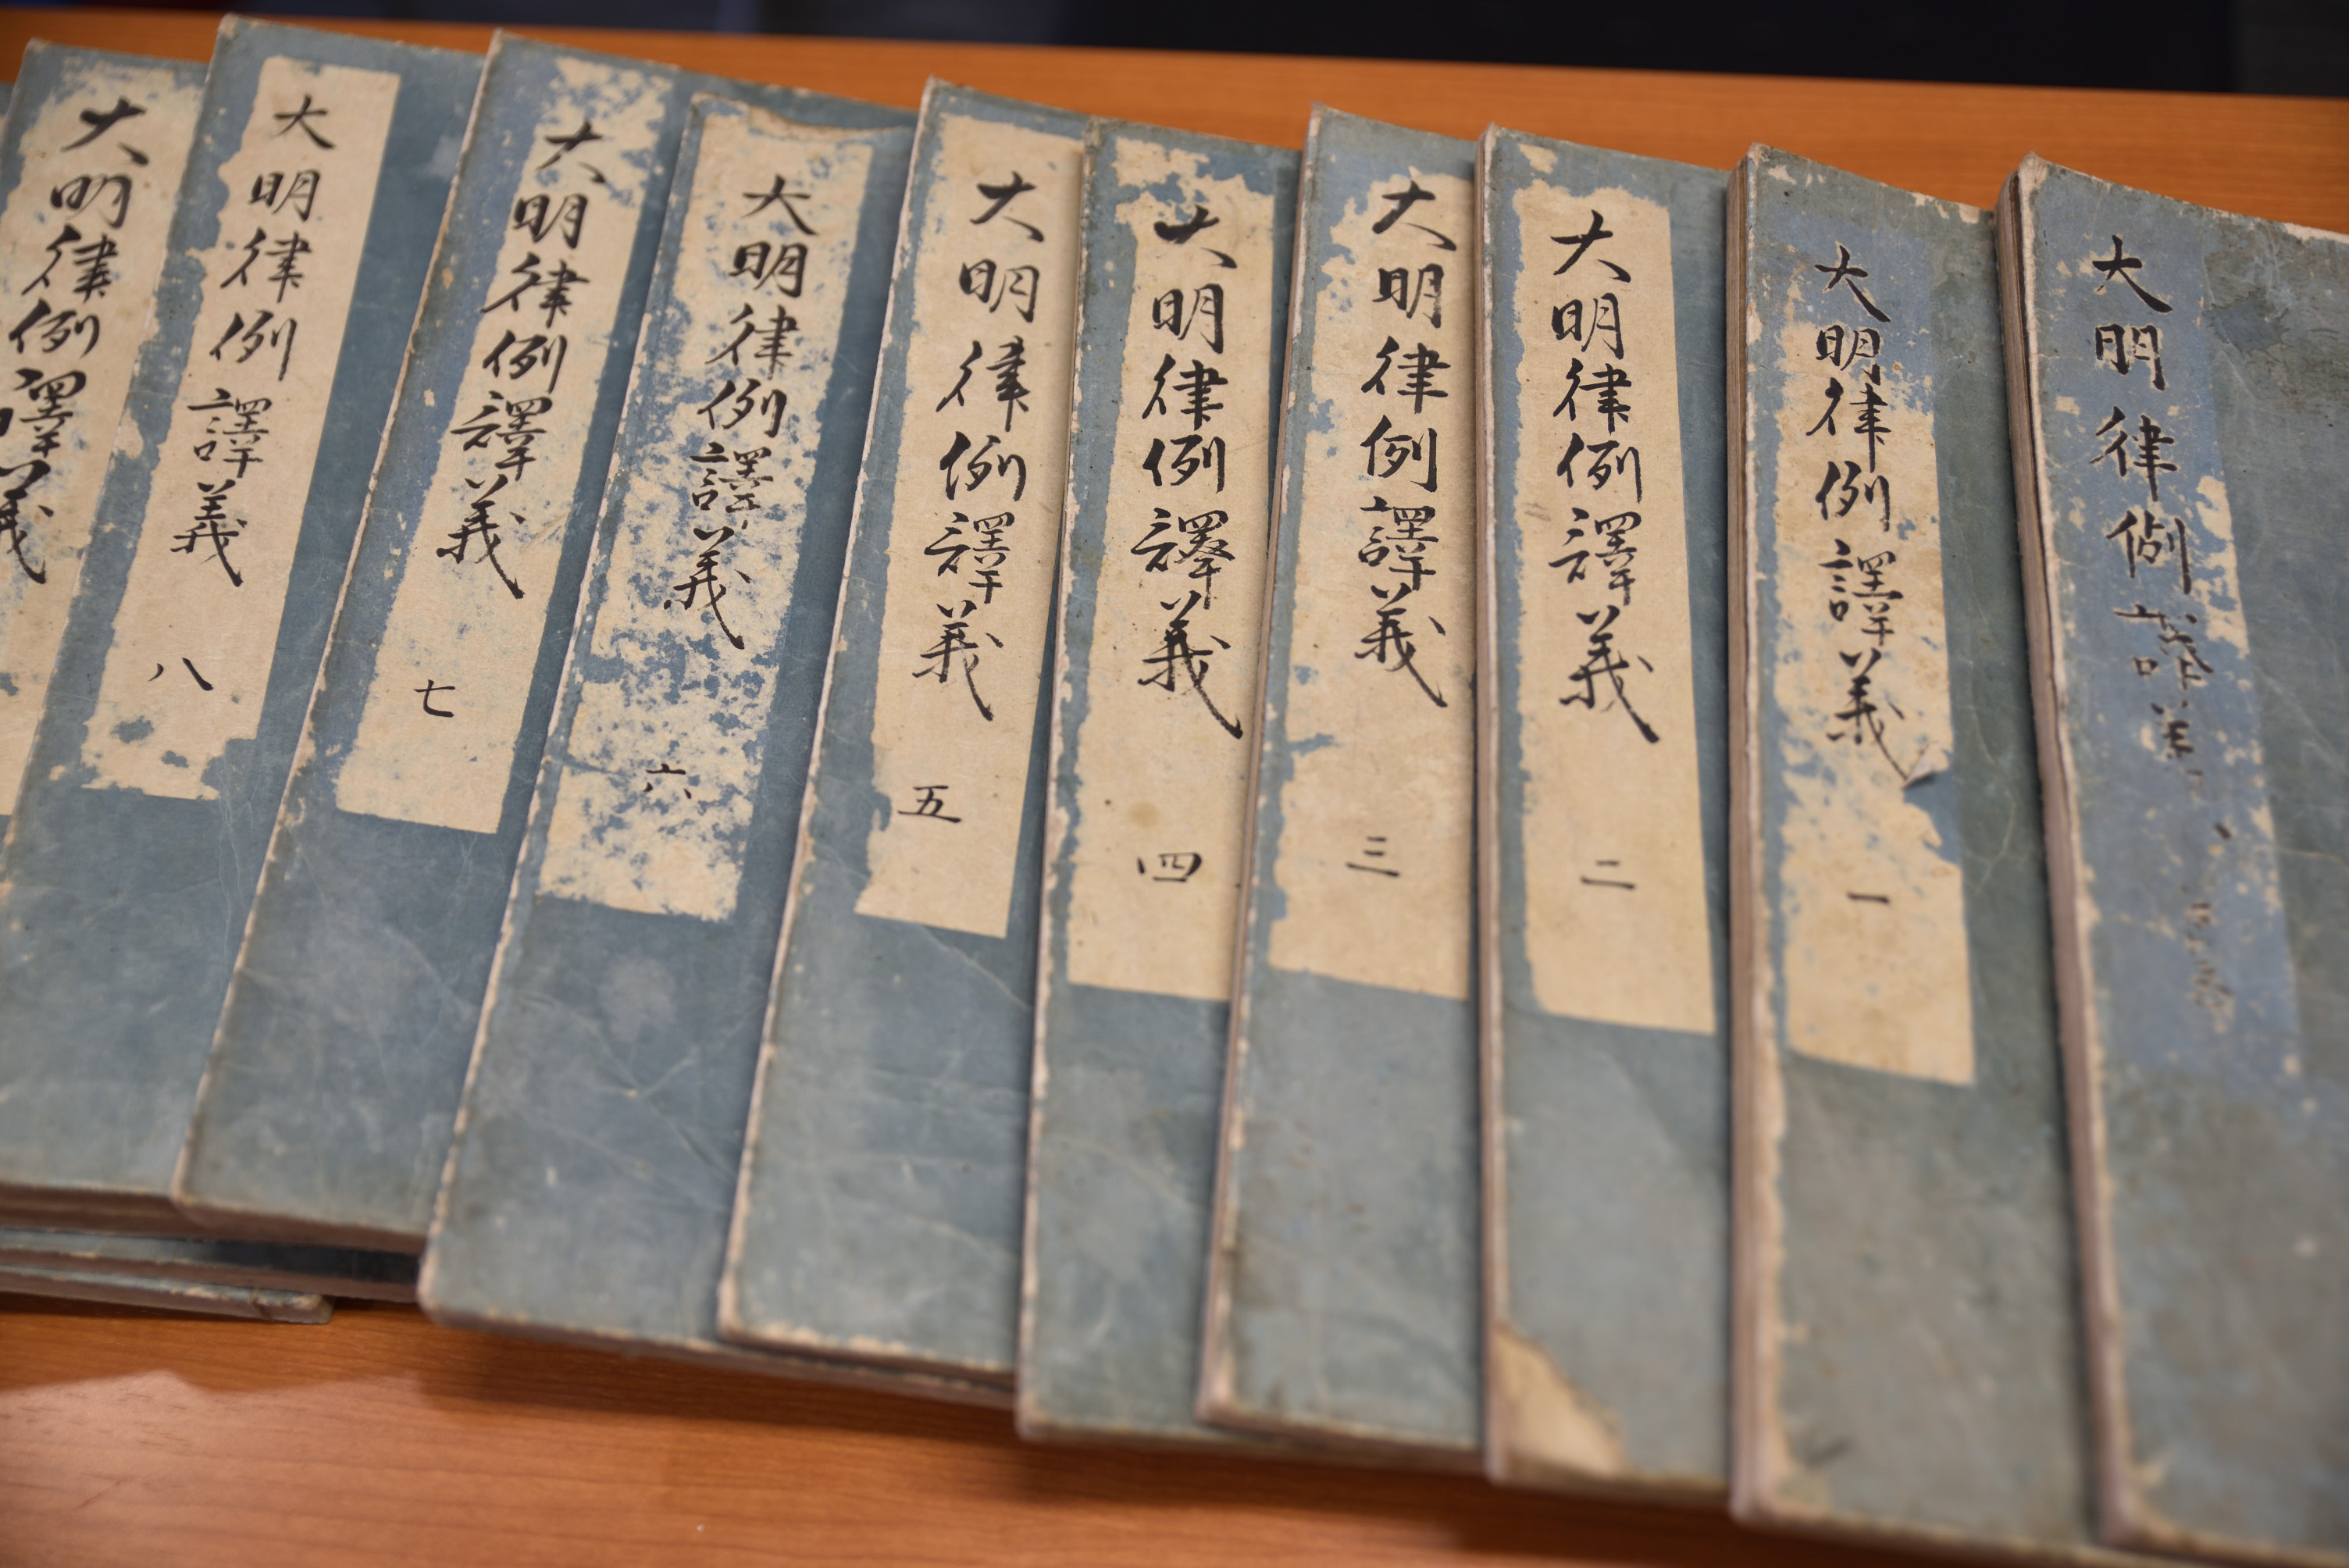 大明律例譯
大明律例譯義 一
大明律例譯義 二
大明律例譯義 三
大明律例譯義 四
大明律例譯義 五
大明律例譯義 六
大明律例譯義 七
大明律例譯義 八
大明律例譯義